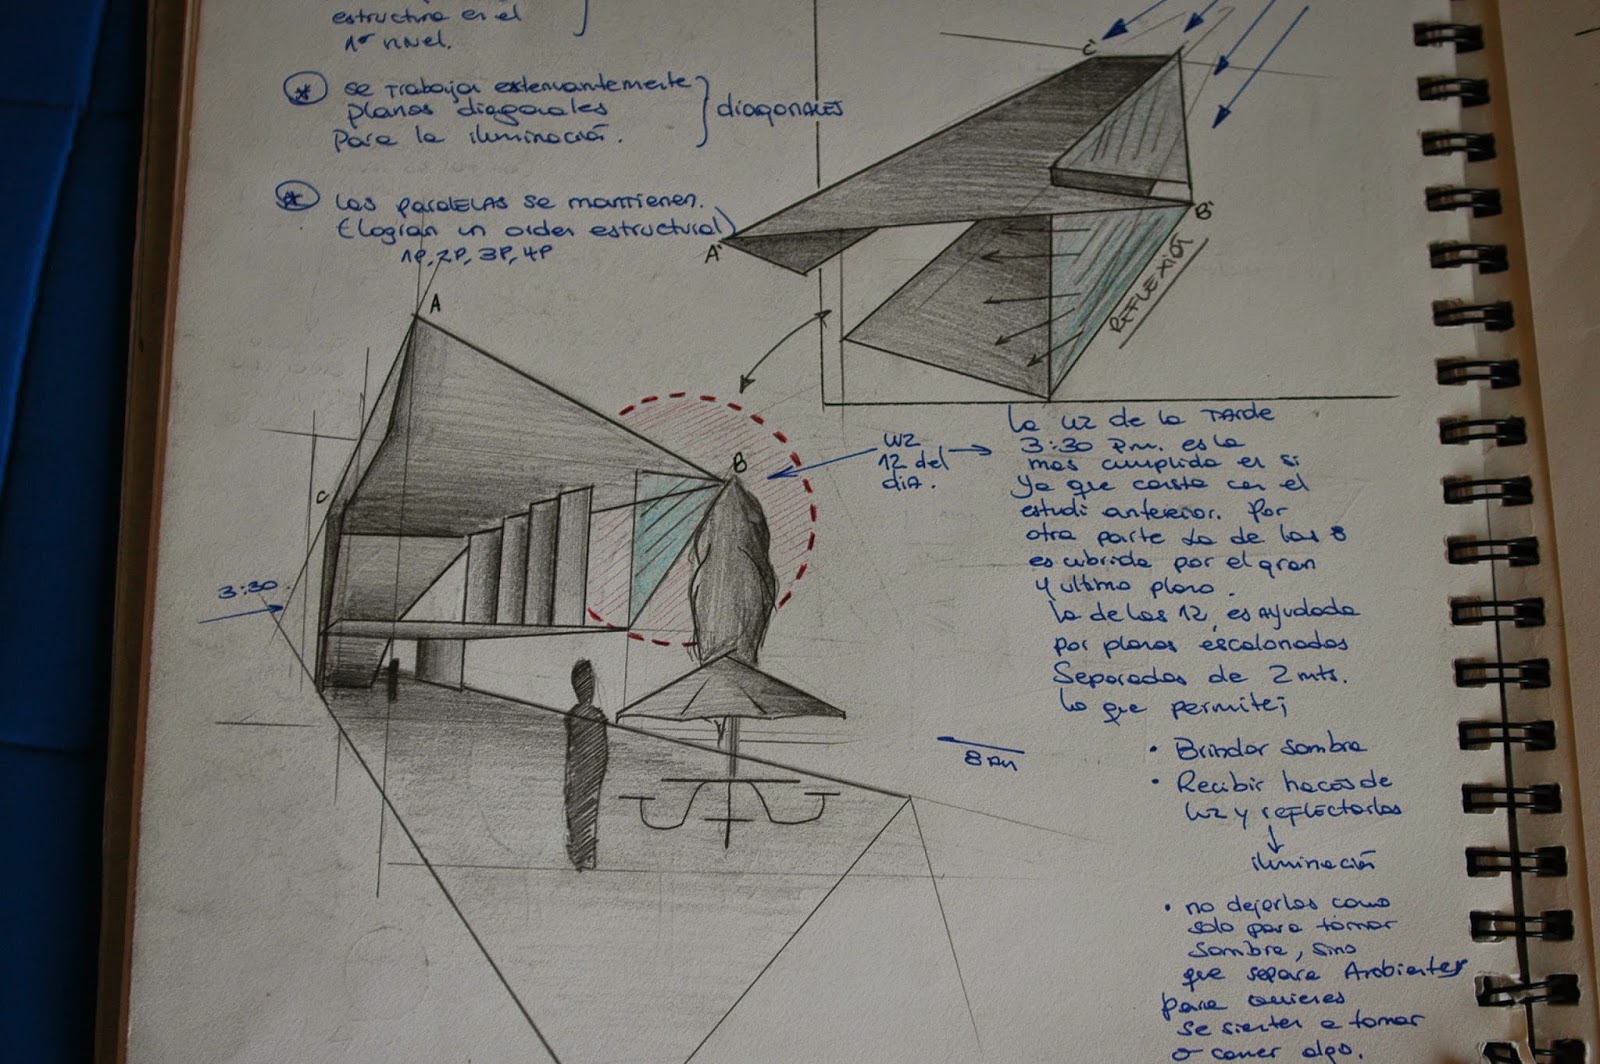 estructura en el
1er nivel.
* se trabajan
planos diagonales
para la iluminación.
diagonales
* Las paralelas se mantienen.
(logran un orden estructural)
1P, 2P, 3P, 4P
C'
A'
B'
REFLEXIÓN
A
B
C
3:30
luz
12 del
día.
La luz de la tarde
3:30 p.m. es la
mas cumplida en si
ya que consta con el
estudi anterior. Por
otra parte la de las 8
es cubrida por el gran
y ultimo plano.
la de las 12, es ayudada
por planos escalonados
Separados de 2 mts.
Lo que permite;
8 am
• Brindar sombra
• Recibir haces de
luz y reflectarlos
iluminación
• no dejarlos como
solo para tomar
sombra, sino
que separe Ambientes
para quienes
se sienten a tomar
o comer algo.